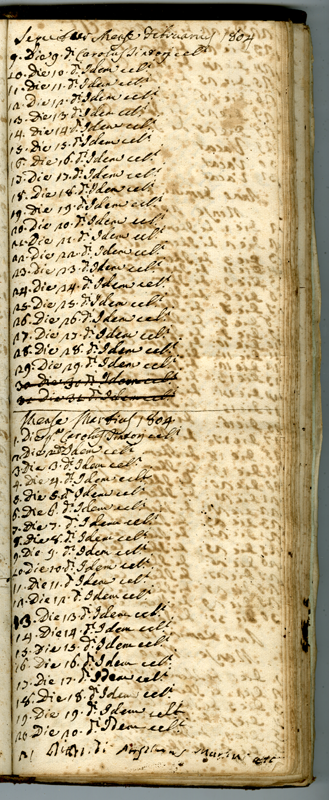 Mense Februarius 1804
9. Die 9. dˢ Carolus celᵗ
10. Die 10. dˢ Idem celᵗ
11. Die 11. dˢ Idem celᵗ
12. Die 12. dˢ Idem celᵗ
13. Die 13. dˢ Idem celᵗ
14. Die 14. dˢ Idem celᵗ
15. Die 15. dˢ Idem celᵗ
16. Die 16. dˢ Idem celᵗ
17. Die 17. dˢ Idem celᵗ
18. Die 18. dˢ Idem celᵗ
19. Die 19. dˢ Idem celᵗ
20. Die 20. dˢ Idem celᵗ
21. Die 21. dˢ Idem celᵗ
22. Die 22. dˢ Idem celᵗ
23. Die 23. dˢ Idem celᵗ
24. Die 24. dˢ Idem celᵗ
25. Die 25. dˢ Idem celᵗ
26. Die 26. dˢ Idem celᵗ
27. Die 27. dˢ Idem celᵗ
28. Die 28. dˢ Idem celᵗ
29. Die 29. dˢ Idem celᵗ
30. Die 30. dˢ Idem celᵗ
31. Die 31. dˢ Idem celᵗ
Mense Martius 1804
1. Die Carolus celᵗ
2. Die 2. dˢ Idem celᵗ
3. Die 3. dˢ Idem celᵗ
4. Die 4. dˢ Idem celᵗ
5. Die 5. dˢ Idem celᵗ
6. Die 6. dˢ Idem celᵗ
7. Die 7. dˢ Idem celᵗ
8. Die 8. dˢ Idem celᵗ
9. Die 9. dˢ Idem celᵗ
10. Die 10. dˢ Idem celᵗ
11. Die 11. dˢ Idem celᵗ
12. Die 12. dˢ Idem celᵗ
13. Die 13. dˢ Idem celᵗ
14. Die 14. dˢ Idem celᵗ
15. Die 15. dˢ Idem celᵗ
16. Die 16. dˢ Idem celᵗ
17. Die 17. dˢ Idem celᵗ
18. Die 18. dˢ Idem celᵗ
19. Die 19. dˢ Idem celᵗ
20. Die 20. dˢ Idem celᵗ
21